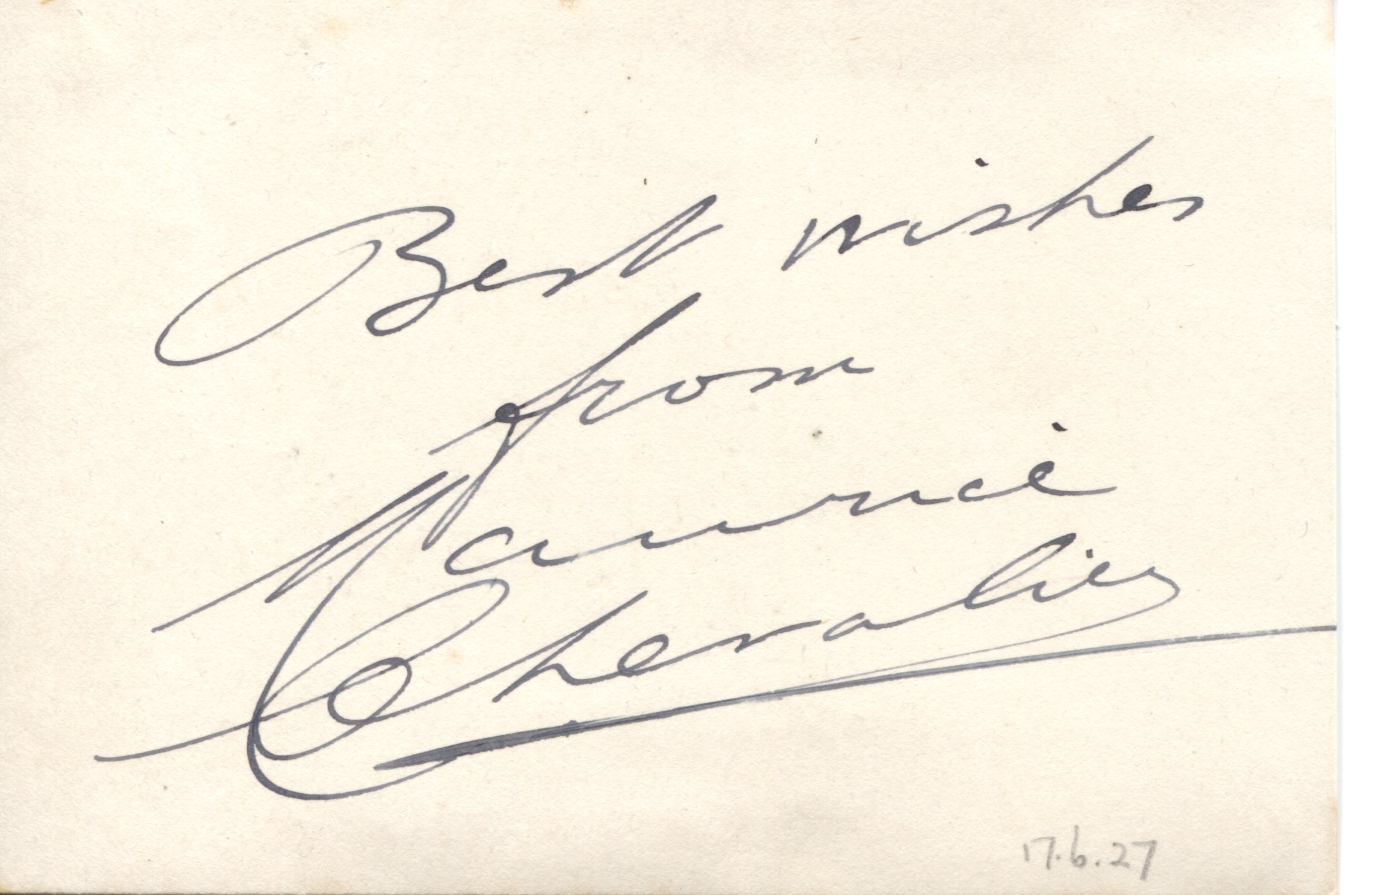 Best wishes
from
Maurice
Chevalier
17.6.27